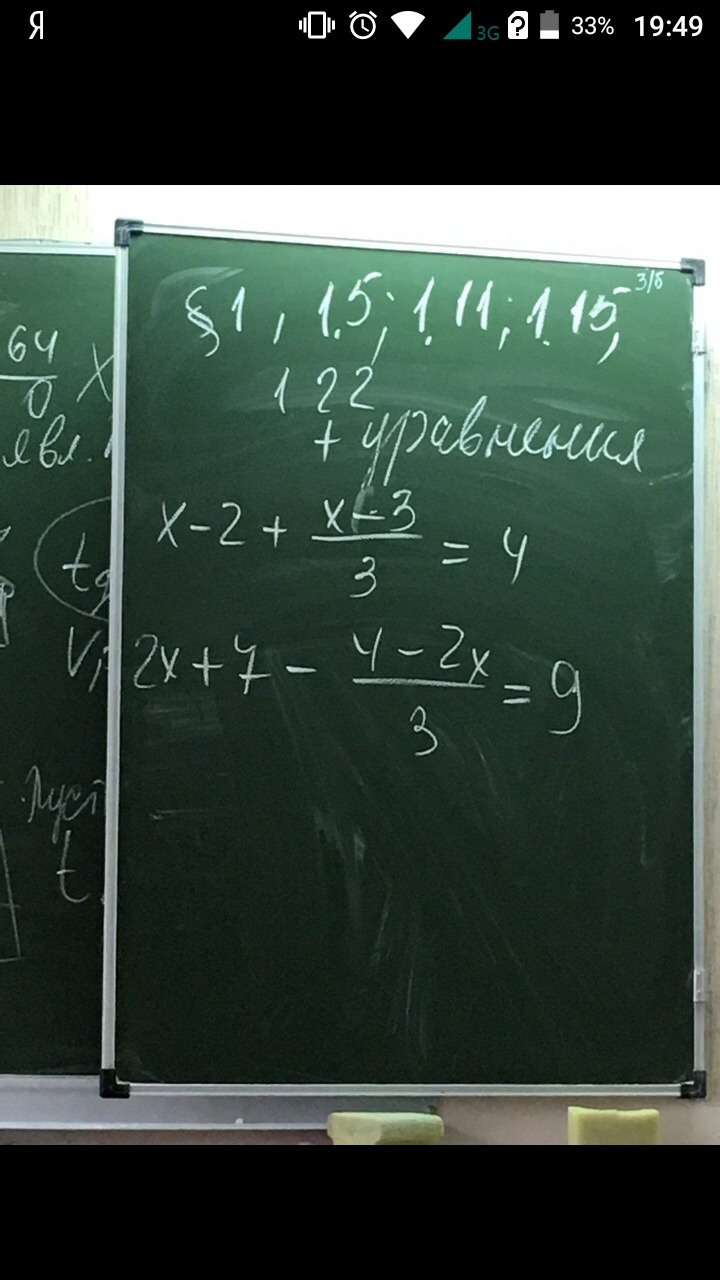 Я 3G ? 33% 19:49
§1, 1.5; 1.11; 1.15; - з/б
1 22
+ уравнения
x-2 + x-3/3 = 4
2x+7 - 4-2x/3 = 9
64
0 X
явл.
V1
Пуст
t